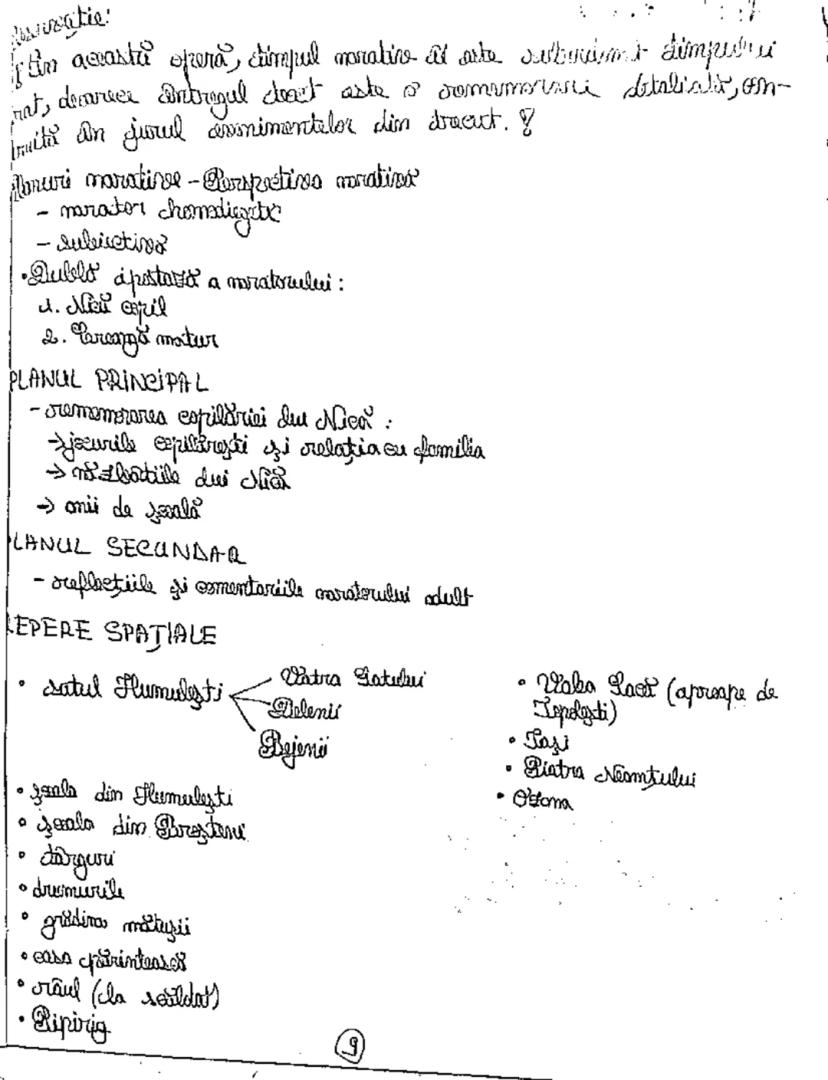 Observație:
! În această operă, timpul narativ îi este subordonat timpului
narat, deoarece întregul text este o rememorare detaliată, con-
struită în jurul evenimentelor din trecut. !
Planuri narative - Perspectiva narativă
- narator homodiegetic
- subiectivă
• Dublă ipostază a naratorului:
1. Nică copil
2. Creangă matur
PLANUL PRINCIPAL
- rememorarea copilăriei lui Nică:
→ jocurile copilărești și relația cu familia
→ năzbâtiile lui Nică
→ anii de școală
PLANUL SECUNDAR
- reflecțiile și comentariile naratorului adult
REPERE SPAȚIALE
• satul Humulești
Vatra Satului
Delenii
Bejenii
• școala din Humulești
• școala din Broșteni
• târguri
• drumurile
• grădina mătușii
• casa părintească
• râul (la scăldat)
• Pipirig
• Valea Seacă (aproape de
Topolești)
• Iași
• Piatra Neamțului
• Ozana
9